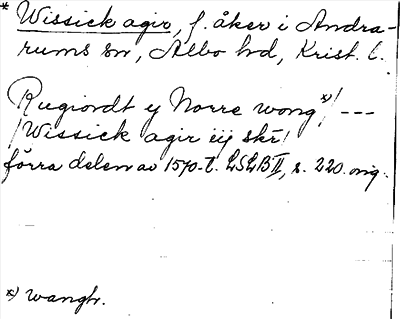 * Wissick agir, f. åker i Andra-
rums sn, Albo hd, Krist. l.
Rugiordt y Norre wong *) / ---
/ Wissick agir iij skr /
förra delen av 1570-t. LSLB II, s. 220. orig.
*) wangh.